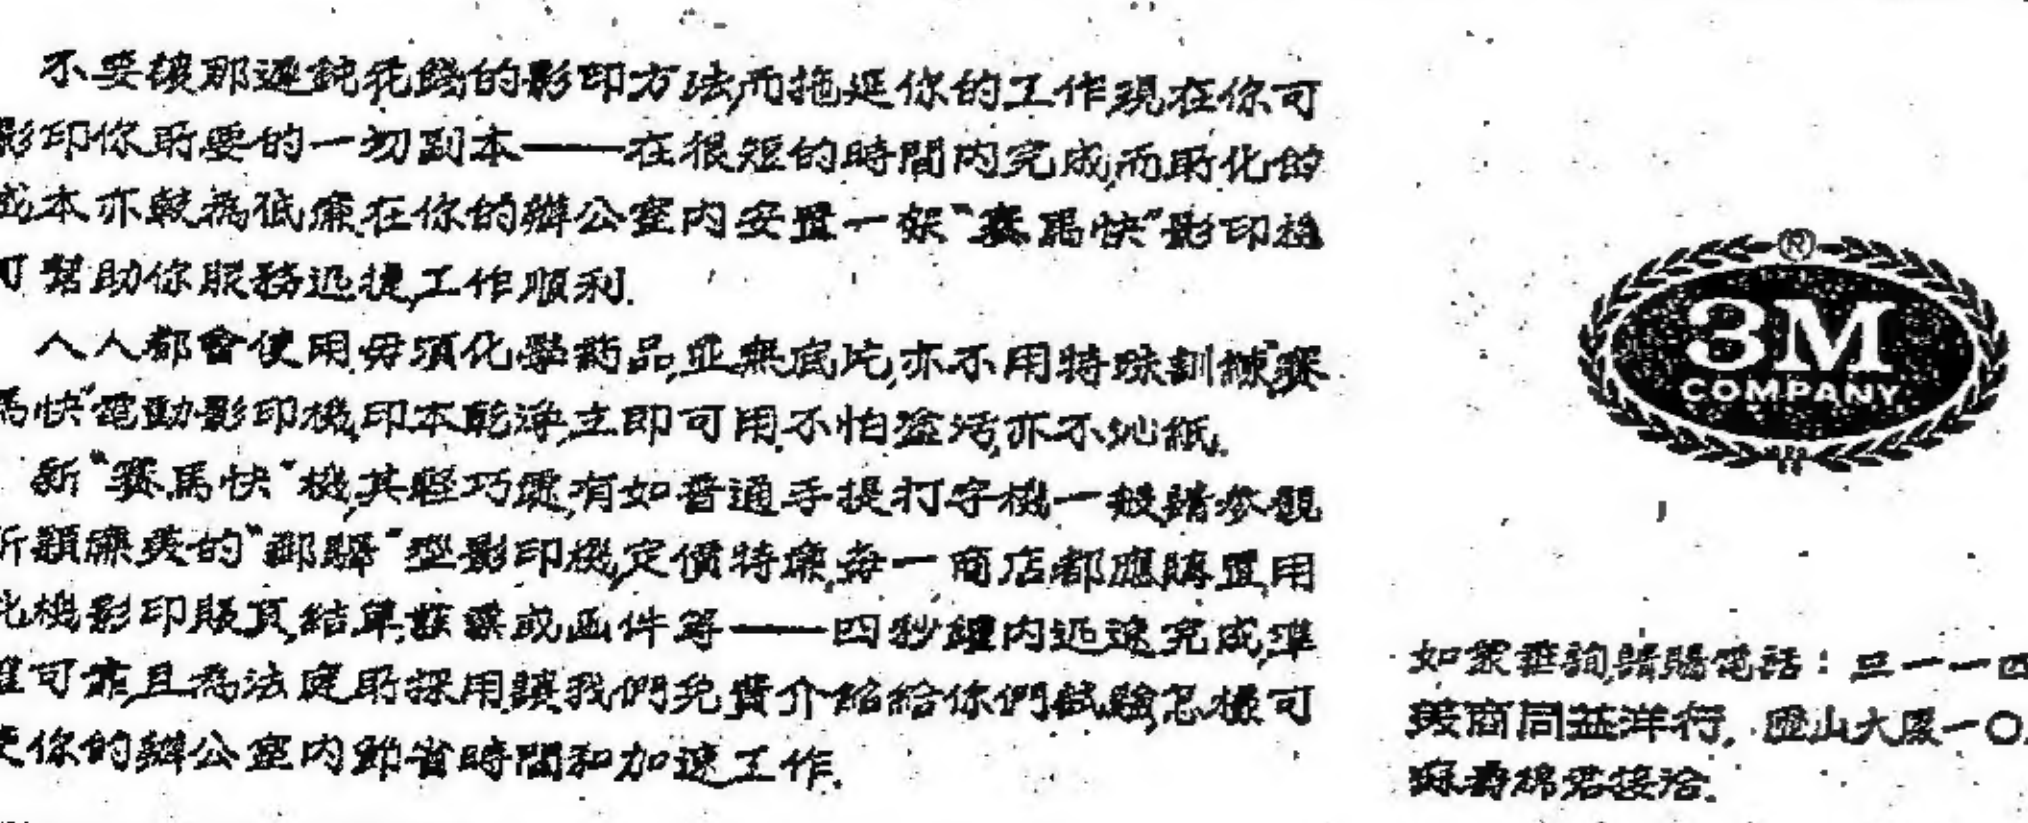 不要被那遲鈍花錢的影印方法,而拖延你的工作,現在你可
影印你所要的一切副本——在很短的時間內完成,而所化的
成本亦較為低廉.在你的辦公室內安置一架"賽馬快"影印機
可幫助你服務迅捷,工作順利.
人人都會使用,毋須化學葯品,並無底片,亦不用特殊訓練,"賽
馬快"電動影印機,印本乾淨,立即可用,不怕塗污,亦不沙紙.
新"賽馬快"機,其輕巧處,有如普通手提打字機一般,請參觀
新穎廉美的"郵驛"型影印機,定價特廉,每一商店都應購置,用
此機影印賬頁,結單,或函件等——四秒鐘內迅速完成,準
確可靠,且為法庭所採用,讓我們免費介紹給你們試驗,怎樣可
使你的辦公室內節省時間和加速工作.
®
3M
COMPANY
如蒙垂詢,請賜電話:三一一四
美商同益洋行,歷山大廈一〇
接洽.